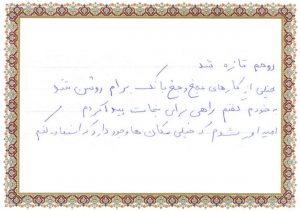 روحم تازه شد
خیلی از کارهای بانک برام روشن شد
به خودم گفتم راهی برای نجات پیدا کردم
امیدوار شدم که خیلی مکان ها وجود داره که استفاده کنم